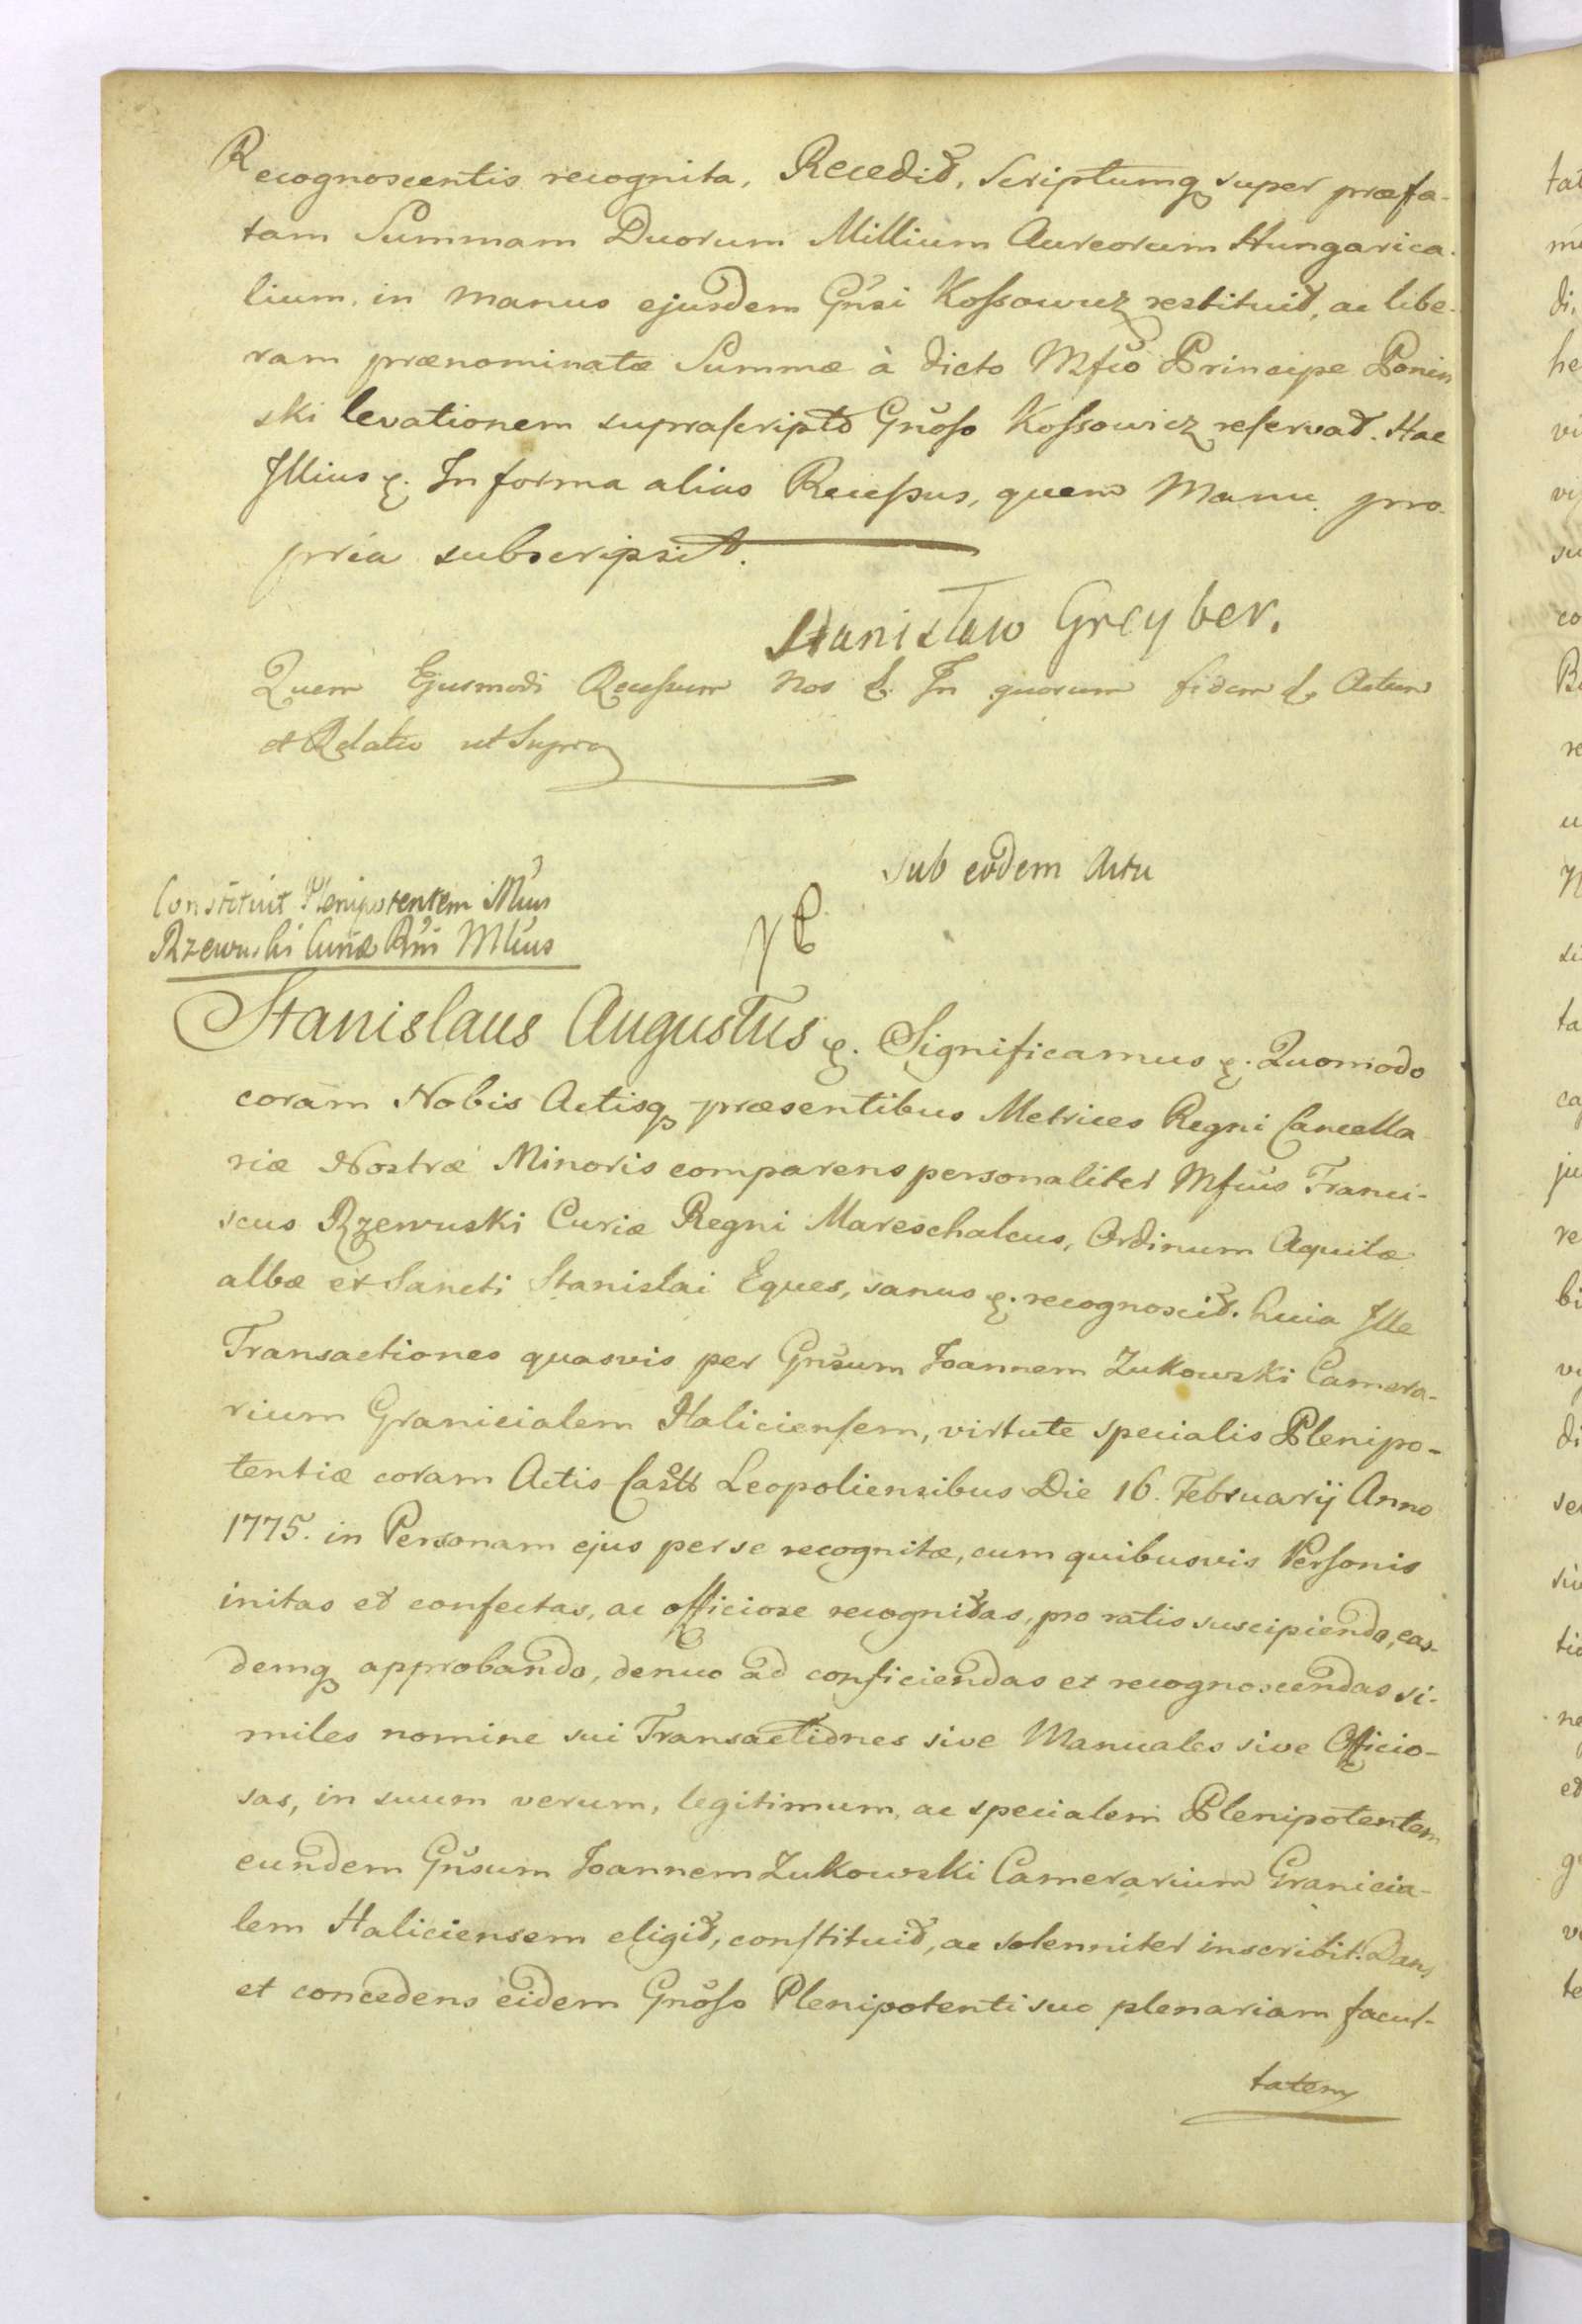 Recognoscentis recognita, Recedit, Scriptumq super præfa-
tam Summam Duorum Millium Aureorum Hungarica-
lium, in manus ejusdem Gnsi Kossowicz restituit, ac libe-
ram prænominatæ Summæ à dicto Mfco Principe Ponin
ski levationem suprascripto Gnoso Kossowicz reservat. Hac
Illius &. In forma alias Recessus, quem Manu pro-
pria subscripsit.
Stanisław Greyber.
Quem Ejusmodi Recessum Nos &. In quorum fidem &. Actum
et Relatio ut Supra
Sub eodem Actu
Constituit Plenipotentem Mcus
Rzewuski Curiæ Rni Mlcus
Stanislaus Augustus &. Significamus &. Quomodo
coram Nobis Actisq præsentibus Metrices Regni Cancella
riæ Nostræ Minoris comparens personaliter Mfcus Franci-
scus Rzewuski Curiæ Regni Mareschalcus, Ordinum Aquilæ
albæ et Sancti Stanislai Eques, sanus &. recognoscit. Quia Ille
Transactiones quasvis per Gnsum Joannem Zukowski Camera-
rium Granicialem Haliciensem, virtute specialis Plenipo-
tentiæ coram Actis Castr Leopoliensibus Die 16. Februarij Anno
1775. in Personam ejus per se recognitæ, cum quibusvis Personis
initas et confectas, ac officiose recognitas, pro ratis suscipiendo, eas-
demq approbando, denuo ad conficiendas et recognoscendas si-
miles nomine sui Transactiones sive Manuales sive Officio-
sas, in suum verum, legitimum, ac specialem Plenipotentem
eundem Gnsum Joannem Zukowski Camerarium Granicia-
lem Haliciensem eligit, constituit, ac solenniter inscribit. Dans
et concedens eidem Gnoso Plenipotenti suo plenariam facul-
tatem